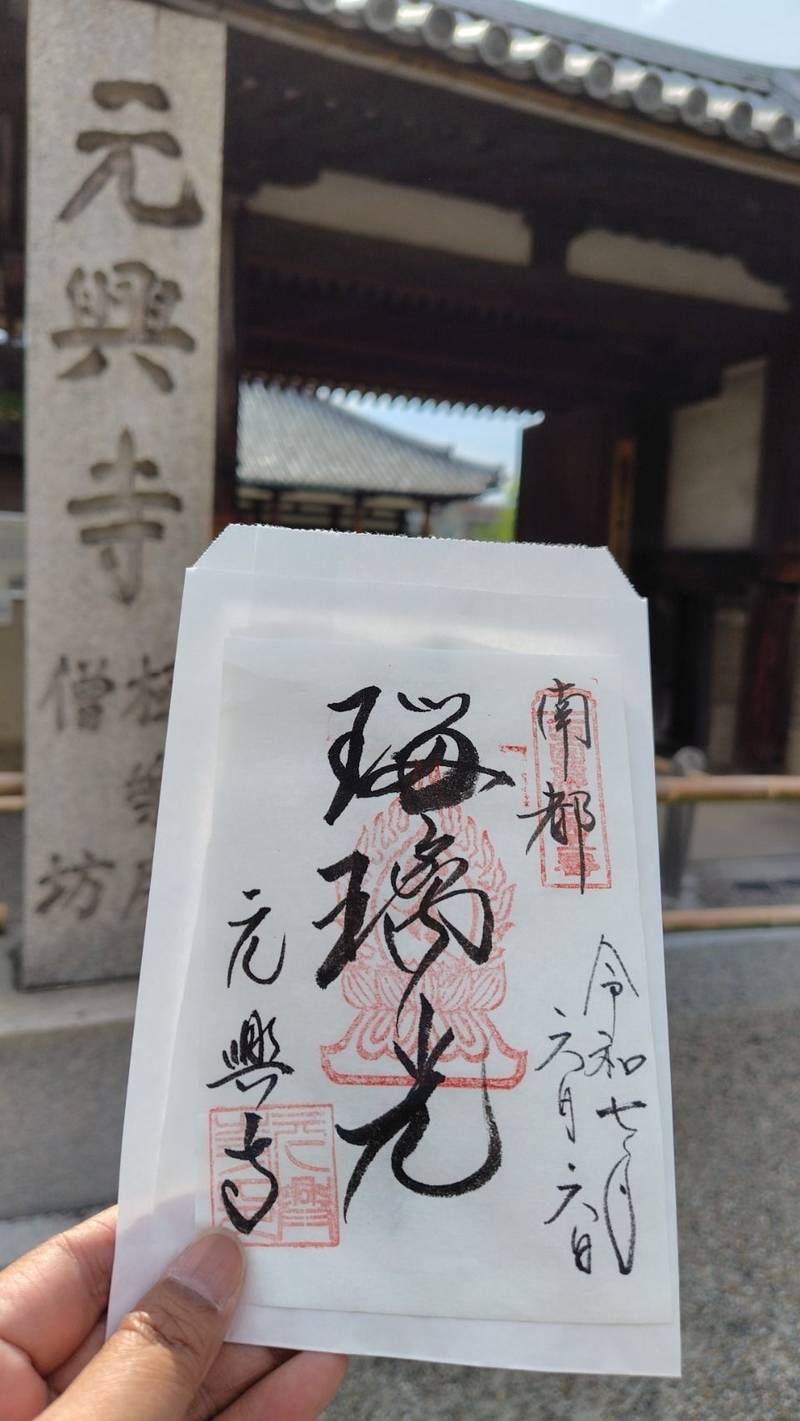 元興寺
僧坊
南都
令和七年
六月六日
瑠璃光
元興寺